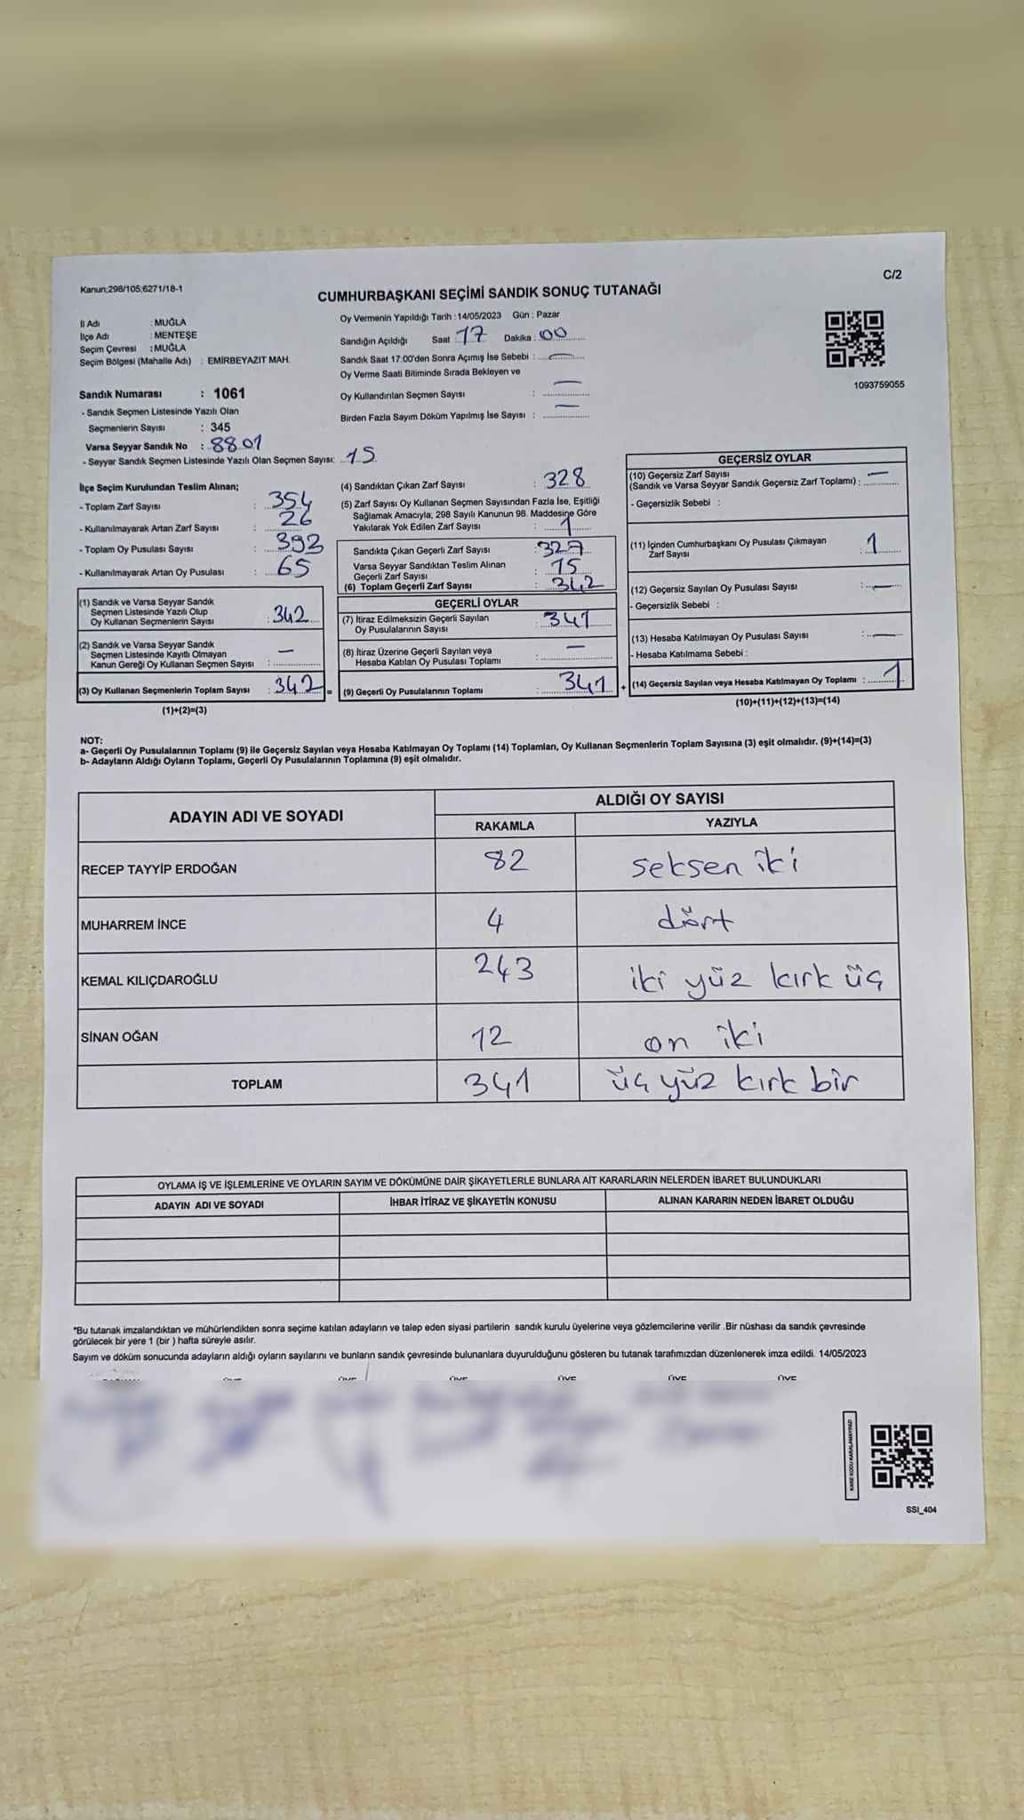 Kanun:298/105,6271/18-1
C/2
CUMHURBAŞKANI SEÇİMİ SANDIK SONUÇ TUTANAĞI
İl Adı : MUĞLA
İlçe Adı : MENTEŞE
Seçim Çevresi : MUĞLA
Seçim Bölgesi (Mahalle Adı) : EMİRBEYAZIT MAH.
Sandık Numarası : 1061
- Sandık Seçmen Listesinde Yazılı Olan
Seçmenlerin Sayısı : 345
Varsa Seyyar Sandık No : 8801
- Seyyar Sandık Seçmen Listesinde Yazılı Olan Seçmen Sayısı: 15
Oy Vermenin Yapıldığı Tarih : 14/05/2023 Gün : Pazar
Sandığın Açıldığı Saat 17 Dakika : 00
Sandık Saat 17:00'den Sonra Açımış İse Sebebi : —
Oy Verme Saati Bitiminde Sırada Bekleyen ve
Oy Kullandırılan Seçmen Sayısı : —
Birden Fazla Sayım Döküm Yapılmış İse Sayısı : —
1093759055
İlçe Seçim Kurulundan Teslim Alınan;
- Toplam Zarf Sayısı : 354
- Kullanılmayarak Artan Zarf Sayısı : 26
- Toplam Oy Pusulası Sayısı : 393
- Kullanılmayarak Artan Oy Pusulası : 65
(1) Sandık ve Varsa Seyyar Sandık
Seçmen Listesinde Yazılı Olup
Oy Kullanan Seçmenlerin Sayısı : 342
(2) Sandık ve Varsa Seyyar Sandık
Seçmen Listesinde Kayıtlı Olmayan
Kanun Gereği Oy Kullanan Seçmen Sayısı : —
(3) Oy Kullanan Seçmenlerin Toplam Sayısı : 342 =
(1)+(2)=(3)
(4) Sandıktan Çıkan Zarf Sayısı : 328
(5) Zarf Sayısı Oy Kullanan Seçmen Sayısından Fazla İse, Eşitliği
Sağlamak Amacıyla, 298 Sayılı Kanunun 98. Maddesine Göre
Yakılarak Yok Edilen Zarf Sayısı : 1
Sandıkta Çıkan Geçerli Zarf Sayısı : 327
Varsa Seyyar Sandıktan Teslim Alınan
Geçerli Zarf Sayısı : 15
(6) Toplam Geçerli Zarf Sayısı : 342
GEÇERLİ OYLAR
(7) İtiraz Edilmeksizin Geçerli Sayılan
Oy Pusulalarının Sayısı : 341
(8) İtiraz Üzerine Geçerli Sayılan veya
Hesaba Katılan Oy Pusulası Toplamı : —
(9) Geçerli Oy Pusulalarının Toplamı : 341 +
GEÇERSİZ OYLAR
(10) Geçersiz Zarf Sayısı
(Sandık ve Varsa Seyyar Sandık Geçersiz Zarf Toplamı) : —
- Geçersizlik Sebebi :
(11) İçinden Cumhurbaşkanı Oy Pusulası Çıkmayan
Zarf Sayısı : 1
(12) Geçersiz Sayılan Oy Pusulası Sayısı : —
- Geçersizlik Sebebi :
(13) Hesaba Katılmayan Oy Pusulası Sayısı : —
- Hesaba Katılmama Sebebi :
(14) Geçersiz Sayılan veya Hesaba Katılmayan Oy Toplamı : 1
(10)+(11)+(12)+(13)=(14)
NOT:
a- Geçerli Oy Pusulalarının Toplamı (9) ile Geçersiz Sayılan veya Hesaba Katılmayan Oy Toplamı (14) Toplamları, Oy Kullanan Seçmenlerin Toplam Sayısına (3) eşit olmalıdır. (9)+(14)=(3)
b- Adayların Aldığı Oyların Toplamı, Geçerli Oy Pusulalarının Toplamına (9) eşit olmalıdır.
ADAYIN ADI VE SOYADI
ALDIĞI OY SAYISI
RAKAMLA YAZIYLA
RECEP TAYYİP ERDOĞAN 82 seksen iki
MUHARREM İNCE 4 dört
KEMAL KILIÇDAROĞLU 243 iki yüz kırk üç
SİNAN OĞAN 12 on iki
TOPLAM 341 üç yüz kırk bir
OYLAMA İŞ VE İŞLEMLERİNE VE OYLARIN SAYIM VE DÖKÜMÜNE DAİR ŞİKAYETLERLE BUNLARA AİT KARARLARIN NELERDEN İBARET BULUNDUKLARI
ADAYIN ADI VE SOYADI İHBAR İTİRAZ VE ŞİKAYETİN KONUSU ALINAN KARARIN NEDEN İBARET OLDUĞU
*Bu tutanak imzalandıktan ve mühürlendikten sonra seçime katılan adayların ve talep eden siyasi partilerin sandık kurulu üyelerine veya gözlemcilerine verilir .Bir nüshası da sandık çevresinde
görülecek bir yere 1 (bir ) hafta süreyle asılır.
Sayım ve döküm sonucunda adayların aldığı oyların sayılarını ve bunların sandık çevresinde bulunanlara duyurulduğunu gösteren bu tutanak tarafımızdan düzenlenerek imza edildi. 14/05/2023
ÜYE ÜYE ÜYE ÜYE ÜYE
KARE KODU KARALAMAYINIZ!
SSI_404